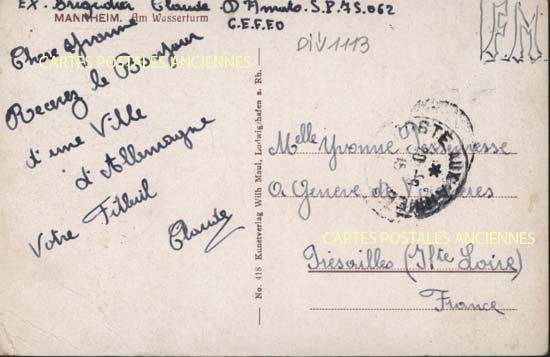 Ex. Brigadier Claude D'Amato. S.P. 75.062
MANNHEIM. Am Wasserturm
C.E.F.EO
FM
Div 1113
Chère Yvonne
CARTES POSTALES ANCIENNES
Recevez le Bonjour
d'une Ville
d'Allemagne
Votre Filleul
Claude
No. 418 Kunstverlag Wilh Maul, Ludwigshafen a. Rh.
POSTE AUX ARMEES
Melle Yvonne
a Geneve de
CARTES POSTALES ANCIENNES
(Hte Loire)
France